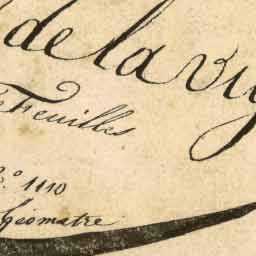 de la vig
Feuilles
o 1110
Géomatre